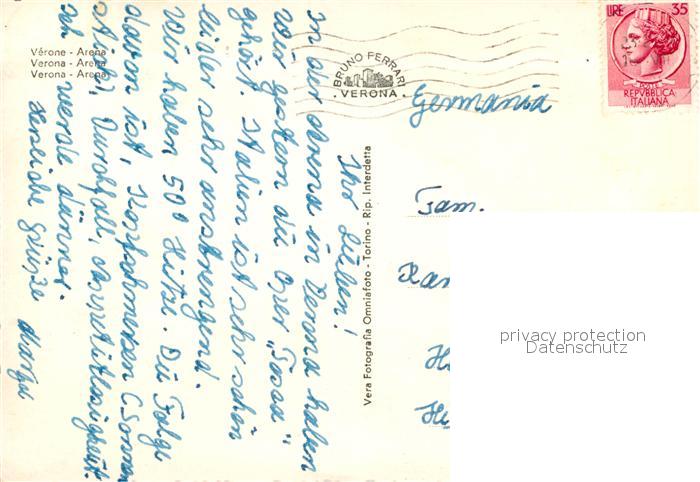 Vérone - Arena
Verona - Arena
Verona - Arena
Ihr Lieben!
In der Arena in Verona haben
wir gestern die Oper „Tosca"
gehört. Italien ist sehr schön
leider sehr anstrengend.
Wir haben 50° Hitze. Die Folge
davon ist, Kopfschmerzen (Sonnen
Stich), Durchfall, Appetitlosigkeit.
Ich werde dünner.
Herzliche Grüße
Vera Fotografia Omniafoto - Torino - Rip. Interdetta
BRUNO FERRARI
VERONA
LIRE 35
POSTE
REPVBBLICA
ITALIANA
Germania
Fam.
privacy protection
Datenschutz